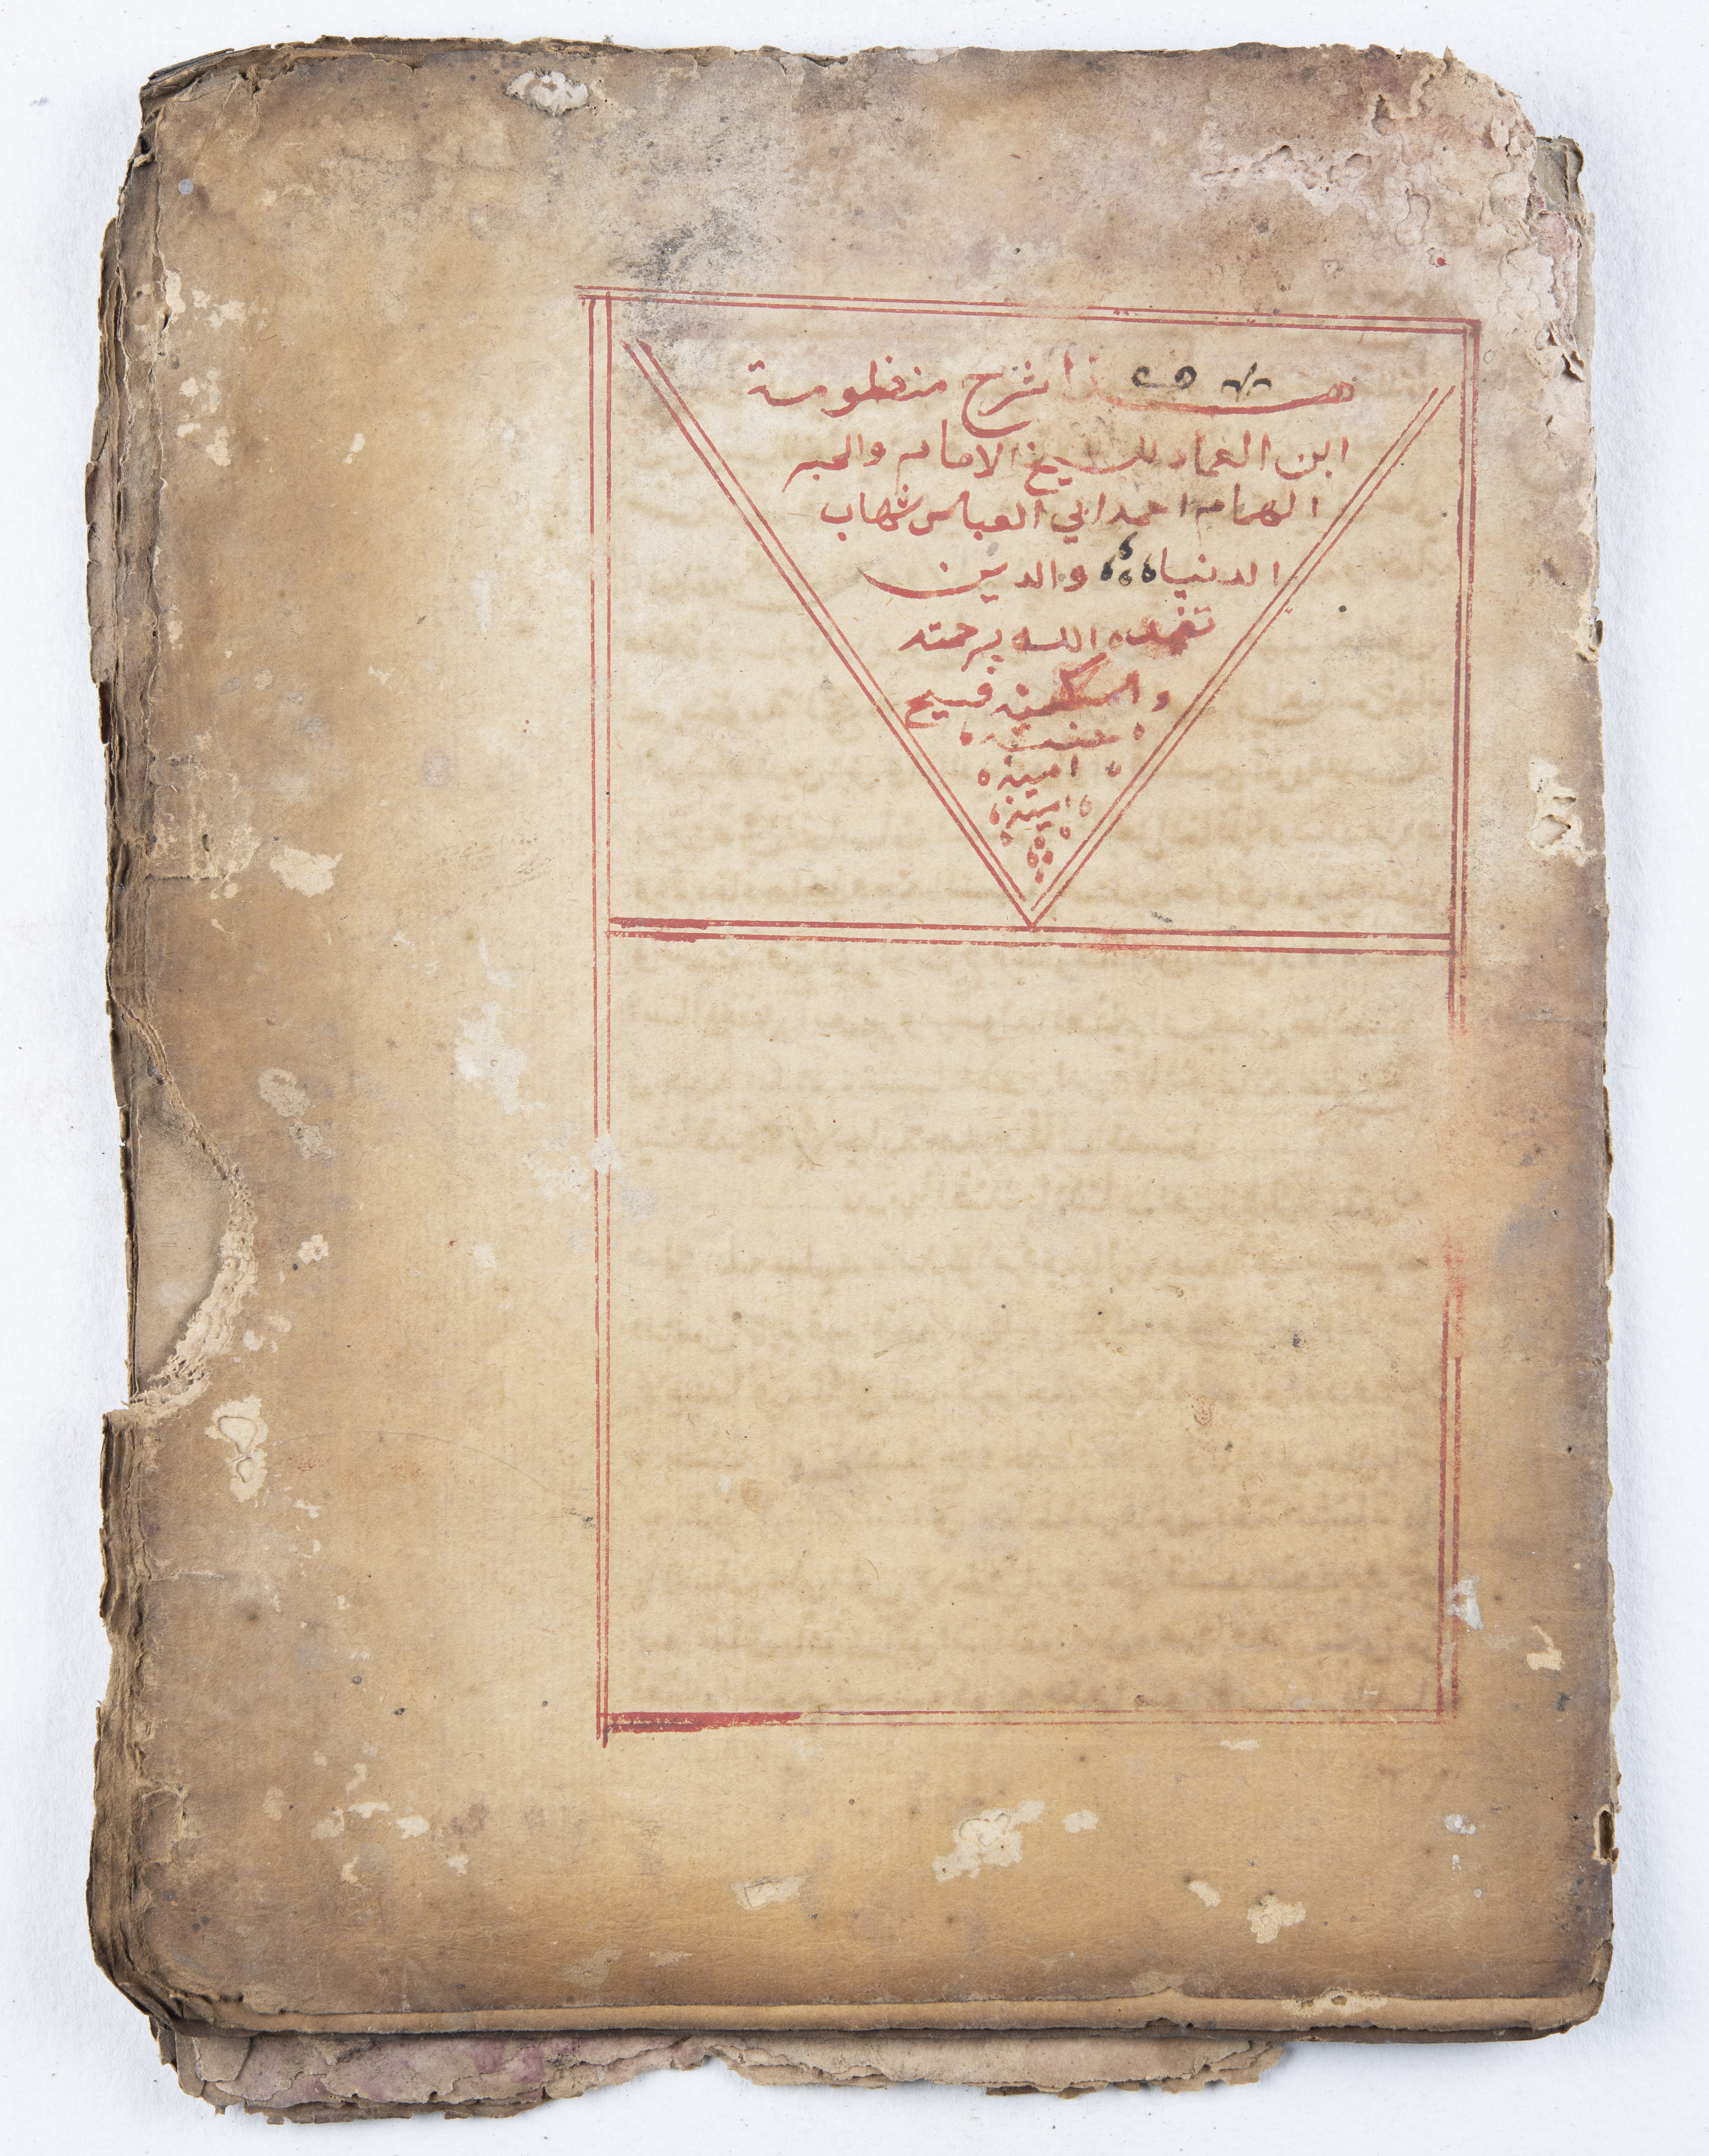 هذا شرح منظومة
ابن العماد للشيخ الامام والحبر
الهمام احمد ابي العباس شهاب
الدنيا والدين
تغمده الله برحمته
واسكنه فسيح
جنته
امين
امين